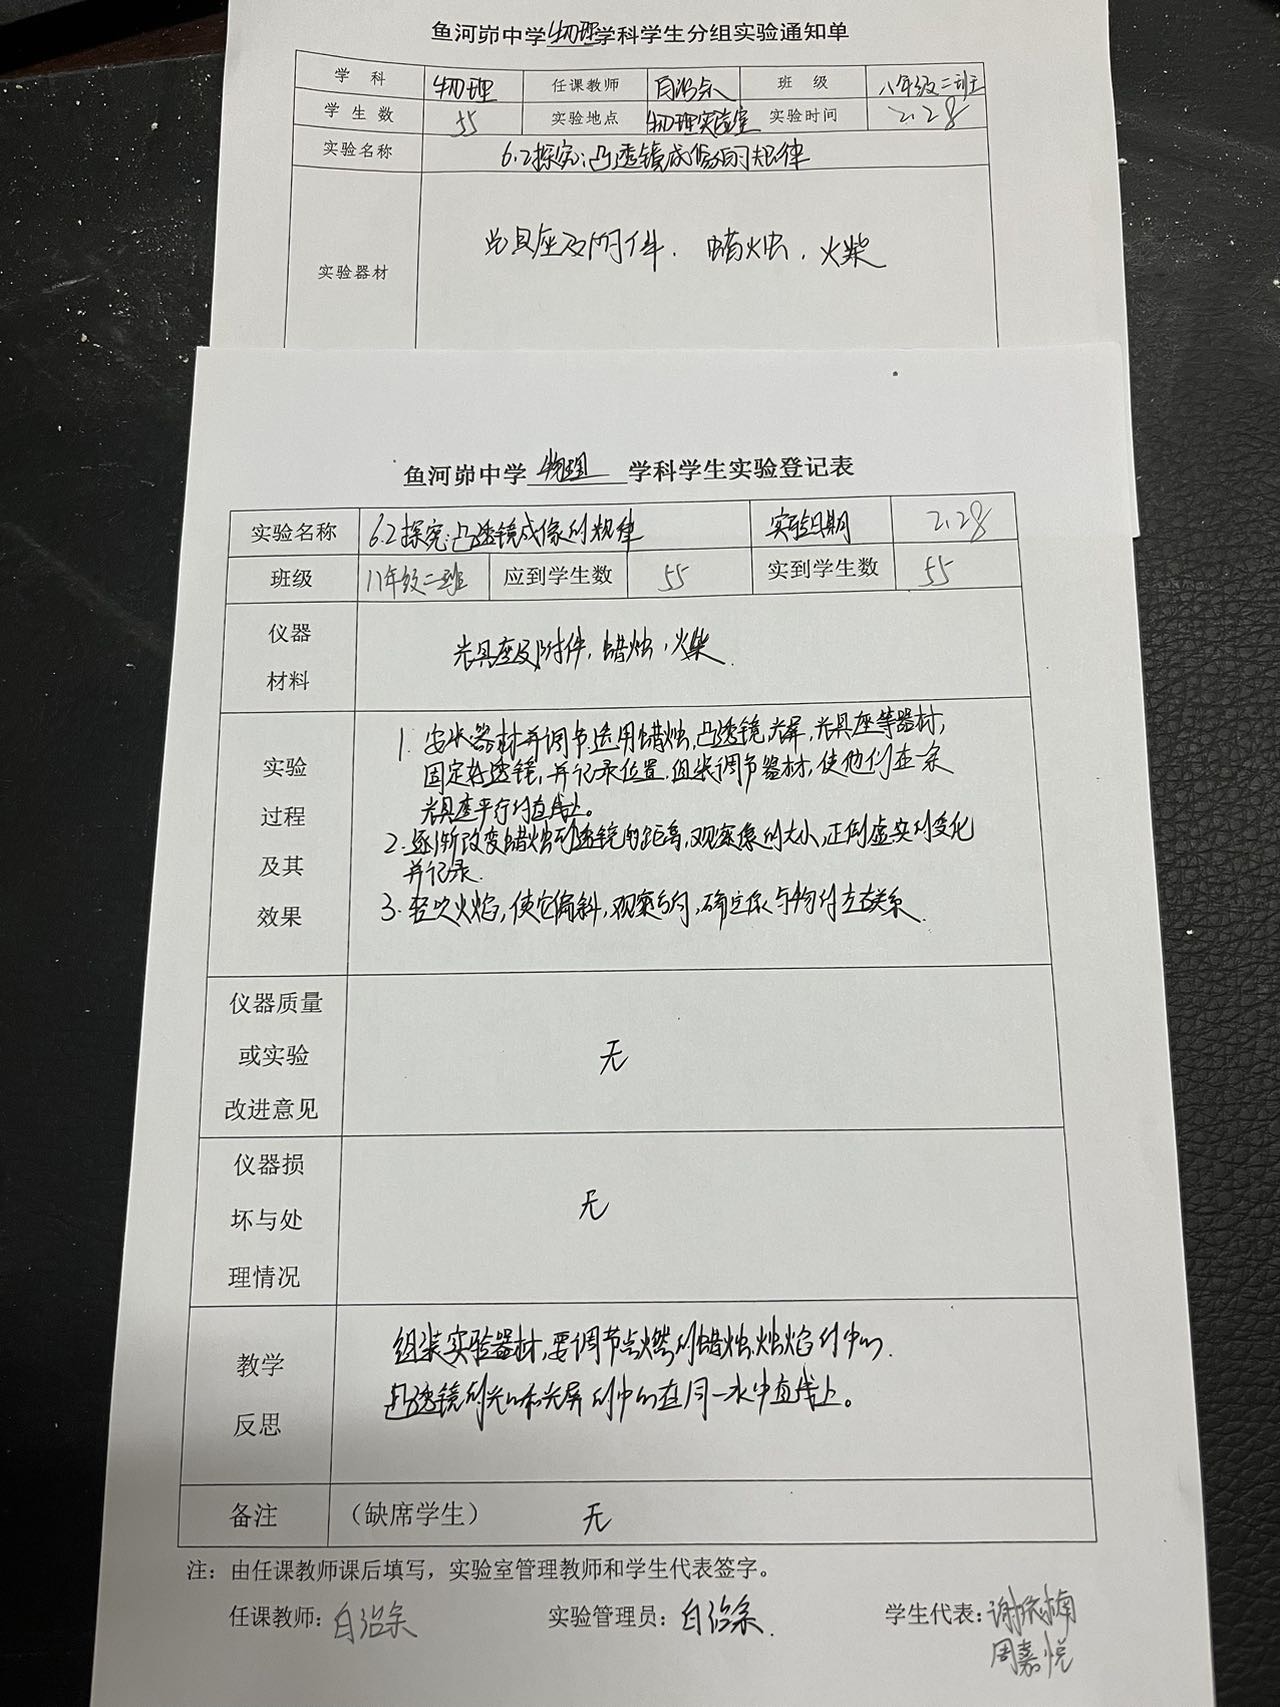 鱼河峁中学物理学科学生分组实验通知单
学 科 物理 任课教师 班 级 八年级二班
学生数 55 实验地点 物理实验室 实验时间 2.28
实验名称 6.2探究:凸透镜成像的规律
实验器材 光具座及附件. 蜡烛. 火柴
鱼河峁中学 物理 学科学生实验登记表
实验名称 6.2探究:凸透镜成像的规律 实验日期 2.28
班级 八年级二班 应到学生数 55 实到学生数 55
仪器
材料
光具座及附件, 蜡烛, 火柴.
实验
过程
及其
效果
1. 器材并调节.选用蜡烛,凸透镜,光屏,光具座等器材,
固定好透镜,并记录位置.组装调节器材,使他们在一条
光具座平行的直线上。
2.逐渐改变蜡烛到透镜的距离,观察像的大小,正倒虚实的变化
并记录.
3.轻吹火焰,使它偏斜,观察方向,确定像与物的左右关系.
仪器质量
或实验
改进意见
无
仪器损
坏与处
理情况
无
教学
反思
组装实验器材,要调节点燃的蜡烛.烛焰的中心.
凸透镜的光心和光屏的中心在同一水平直线上。
备注 (缺席学生) 无
注: 由任课教师课后填写, 实验室管理教师和学生代表签字。
任课教师: 实验管理员: 学生代表:
周嘉悦